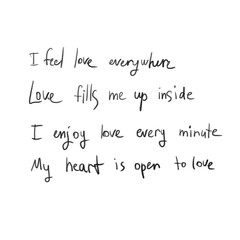 I feel love everywhere
Love fills me up inside
I enjoy love every minute
My heart is open to love